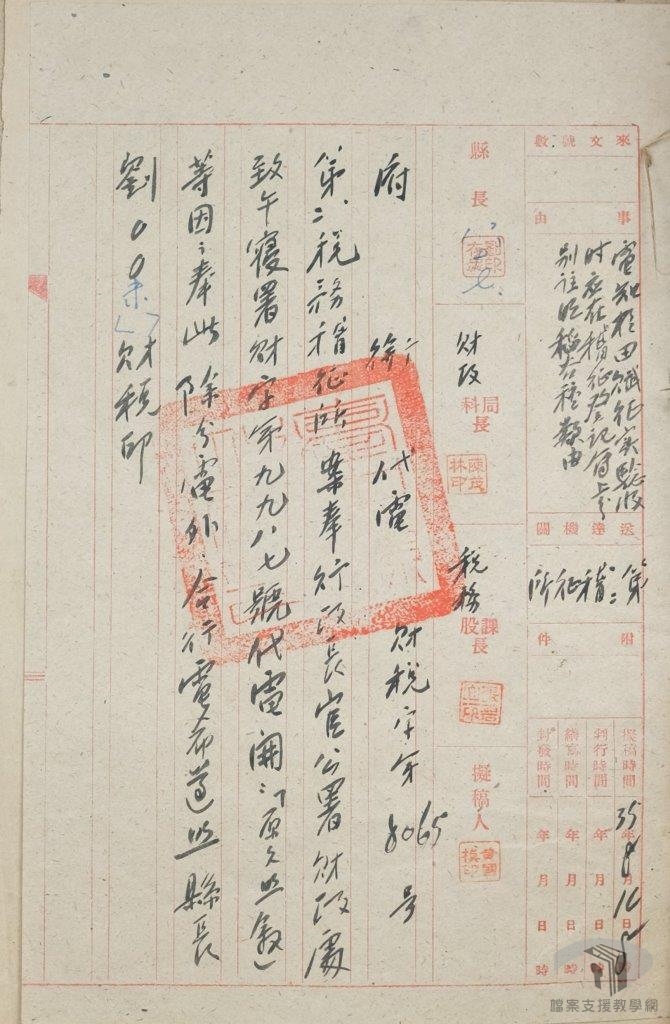 來文號數
事由
電知於田賦征实驗收
时应在稽征登記簿
别註明稻谷種類由
送達機關
第二稽征所
附件
擬稿時間 35年8月16日 時
判行時間 年 月 日 時
繕寫時間 年 月 日 時
封發時間 年 月 日 時
縣長
財政 科局長
陳茂林印
稅務 股課長
擬稿人
府 衔 代電 財稅字第8065号
第二稅務稽征所案奉行政長官公署財政處
致午寢署財字第九九八七號代電開「原文照敘」
等因；奉此除分電外，合行電希遵照縣長
劉○○未 財稅印
檔案支援教學網